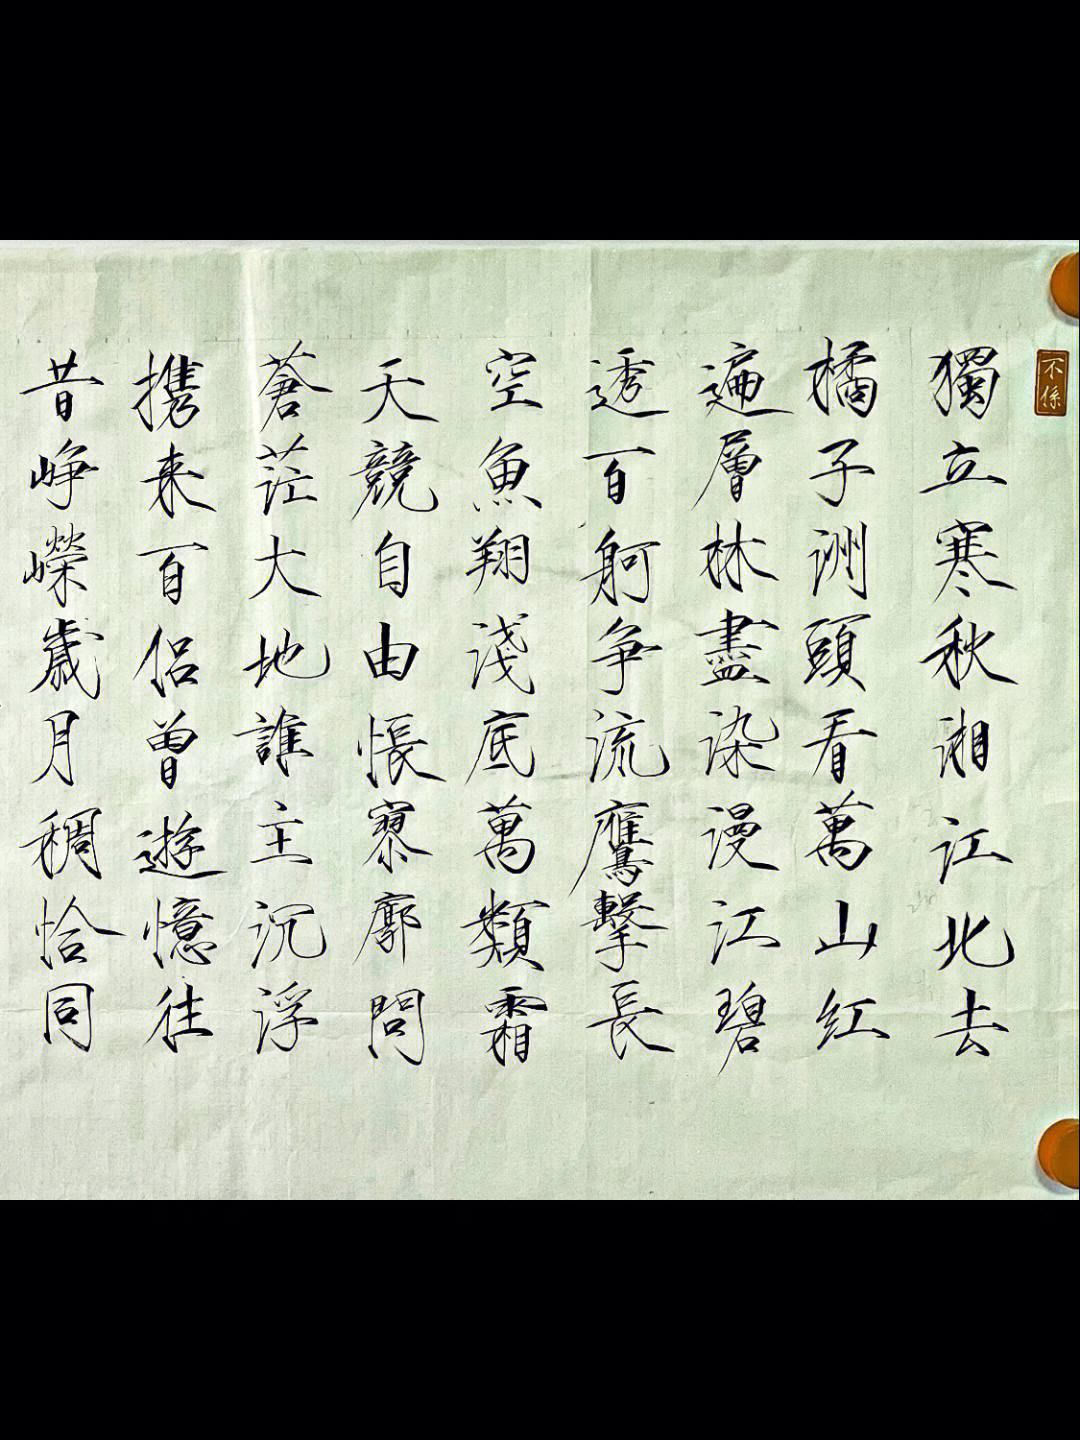 不係
獨立寒秋湘江北去
橘子洲頭看萬山紅
遍層林盡染漫江碧
透百舸争流鷹擊長
空魚翔淺底萬類霜
天競自由悵寥廓問
蒼茫大地誰主沉浮
携来百侣曾遊憶往
昔峥嶸歲月稠恰同